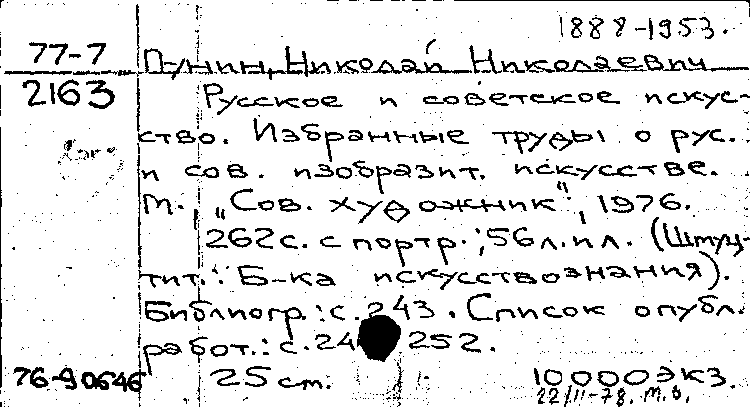 1888-1953.
77-7 Пунин, Николай Николаевич
2163 Русское и советское искус-
ство. Избранные труды о рус.
и сов. изобразит. искусстве.
М., „Сов. художник", 1976.
262с. с портр.; 56л.ил. (Шмуц-
тит.: Б-ка искусствознания).
Библиогр.: с.243. Список опубл.
работ.: с.24 252.
76-90646 25см. 10000экз.
22/II-78.